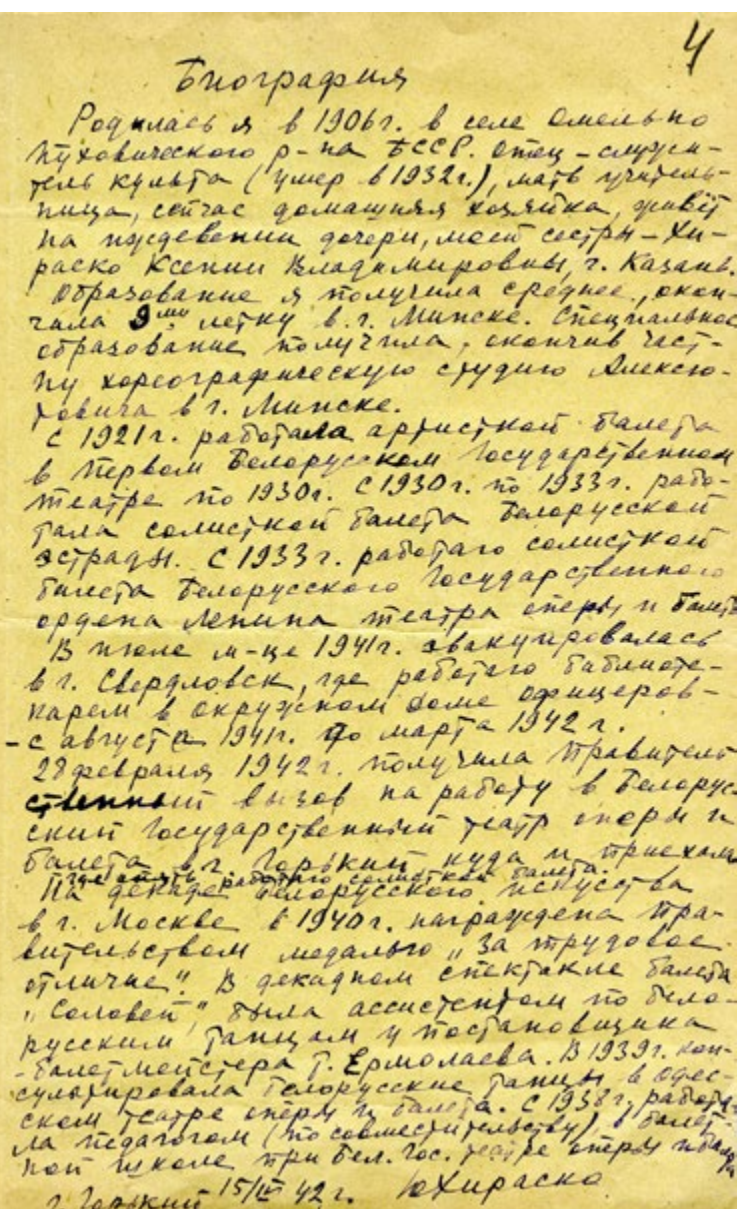 4
Биография
Родилась я в 1906г. в селе Омельно
Пуховического р-на БССР. Отец – служи-
тель культа (умер в 1932г.), мать учитель-
ница, сейчас домашняя хозяйка, живёт
на иждевении дочери, моей сестры – Хи-
раско Ксении Владимировны, г. Казань.
Образование я получила среднее, окон-
чила 9ми летку в г. Минске. Специальное
образование получила, окончив част-
ну хореографическую студию Алексю-
товича в г. Минске.
С 1921г. работала артисткой балета
в Первом Белорусском Государственном
театре по 1930г. С 1930г. по 1933г. рабо-
тала солисткой балета Белорусской
эстрады. С 1933г. работаю солисткой
балета Белорусского Государственного
ордена Ленина театра оперы и балета
В июле м-це 1941г. эвакуировалась
в г. Свердловск, где работаю библиоте-
карем в окружном доме офицеров-
- с августа 1941г. по марта 1942 г.
28 февраля 1942г. получила Правитель
ственный вызов на работу в Белорус-
ский Государственный театр оперы и
балета в г. Горький куда и приехала
где опять работаю солисткой балета.
На декаде Белорусского искусства
в г. Москве в 1940г. награждена Пра-
вительством медалью „За трудовое
отличие". В декадном спектакле балета
„Соловей", была ассистентом по бело-
русским танцам у постановщика
-балетмейстера т. Ермолаева. В 1939г. кон-
сультировала белорусские танцы в одес-
ском театре оперы и балета. С 1938г. работа-
ла педагогом (по совместительству), в балет-
ной школе при Бел. Гос. театре оперы и балета
г. Горький 15/IV 42 г. ЮХираско